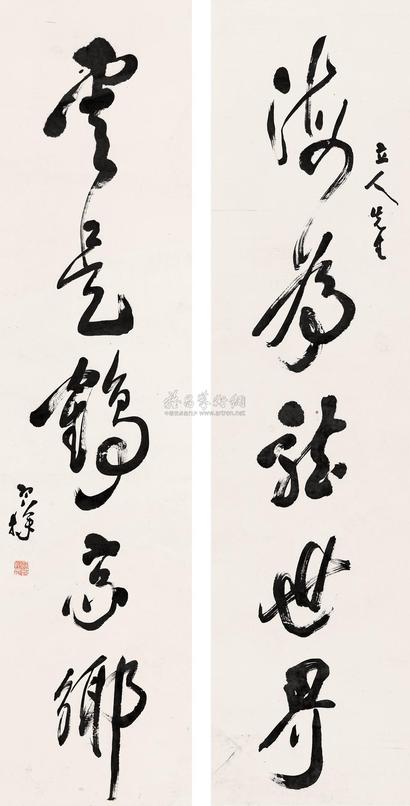 立人先生
海為龍世界
雲是鶴家鄉
雅昌藝術網
www.artron.net